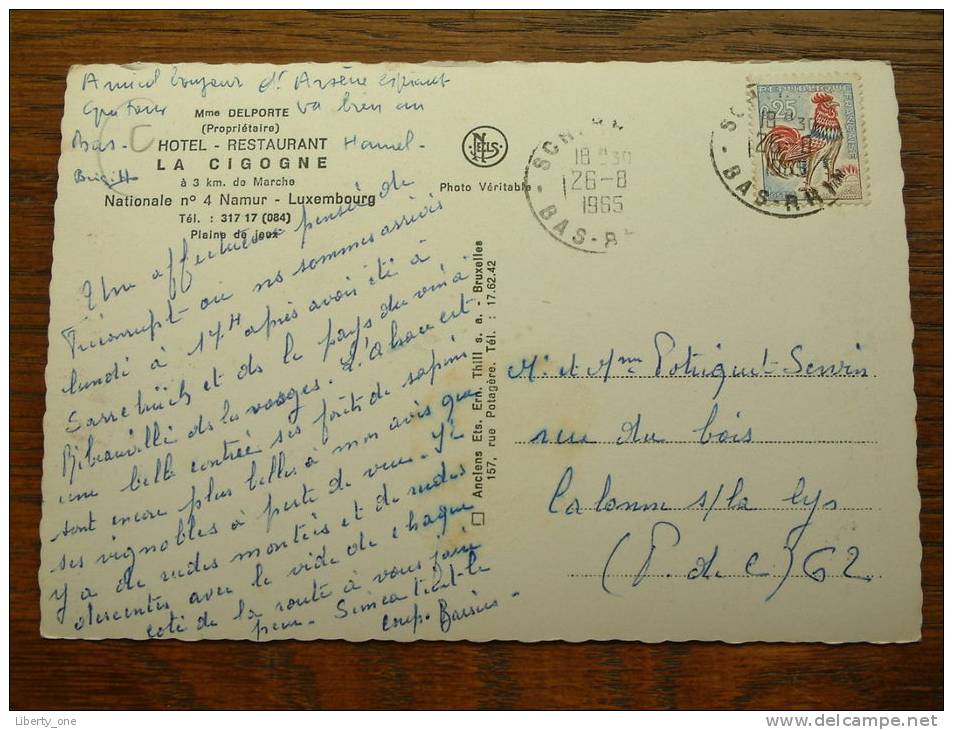 Amical bonjour d' Arsène
va bien au
Hamel -
Bas -
Mme DELPORTE
(Propriétaire)
HOTEL - RESTAURANT
LA CIGOGNE
à 3 km. de Marche
Nationale nº 4 Namur - Luxembourg
Tél. : 317 17 (084)
Plaine de jeux
NELS
Photo Véritable
Une affectueuse pensée de
où nous sommes arrivés
lundi à 17H après avoir été à
Sarrebrück et ds le pays du vin à
Ribeauvillé ds les vosges. L'alsace est
une belle contrée ses forêts de sapins
sont encore plus belles à mon avis que
ses vignobles à perte de vue. Il
y a de rudes montées et de rudes
descentes avec le vide de chaque
coté de la route à vous faire
peur - tient le
coup. Baisers -
Anciens Ets. Ern. Thill s. a. - Bruxelles
157, rue Potagère. Tél. : 17.62.42
18 H 30
26-8
1965
BAS-RHIN
REPUBLIQUE
FRANCAISE
0,25
18 H 30
26-8
1965
BAS-RHIN
M. et Mme
rue du bois
La Lys
(P. de C) 62
Liberty_one
http://www.delcampe.net